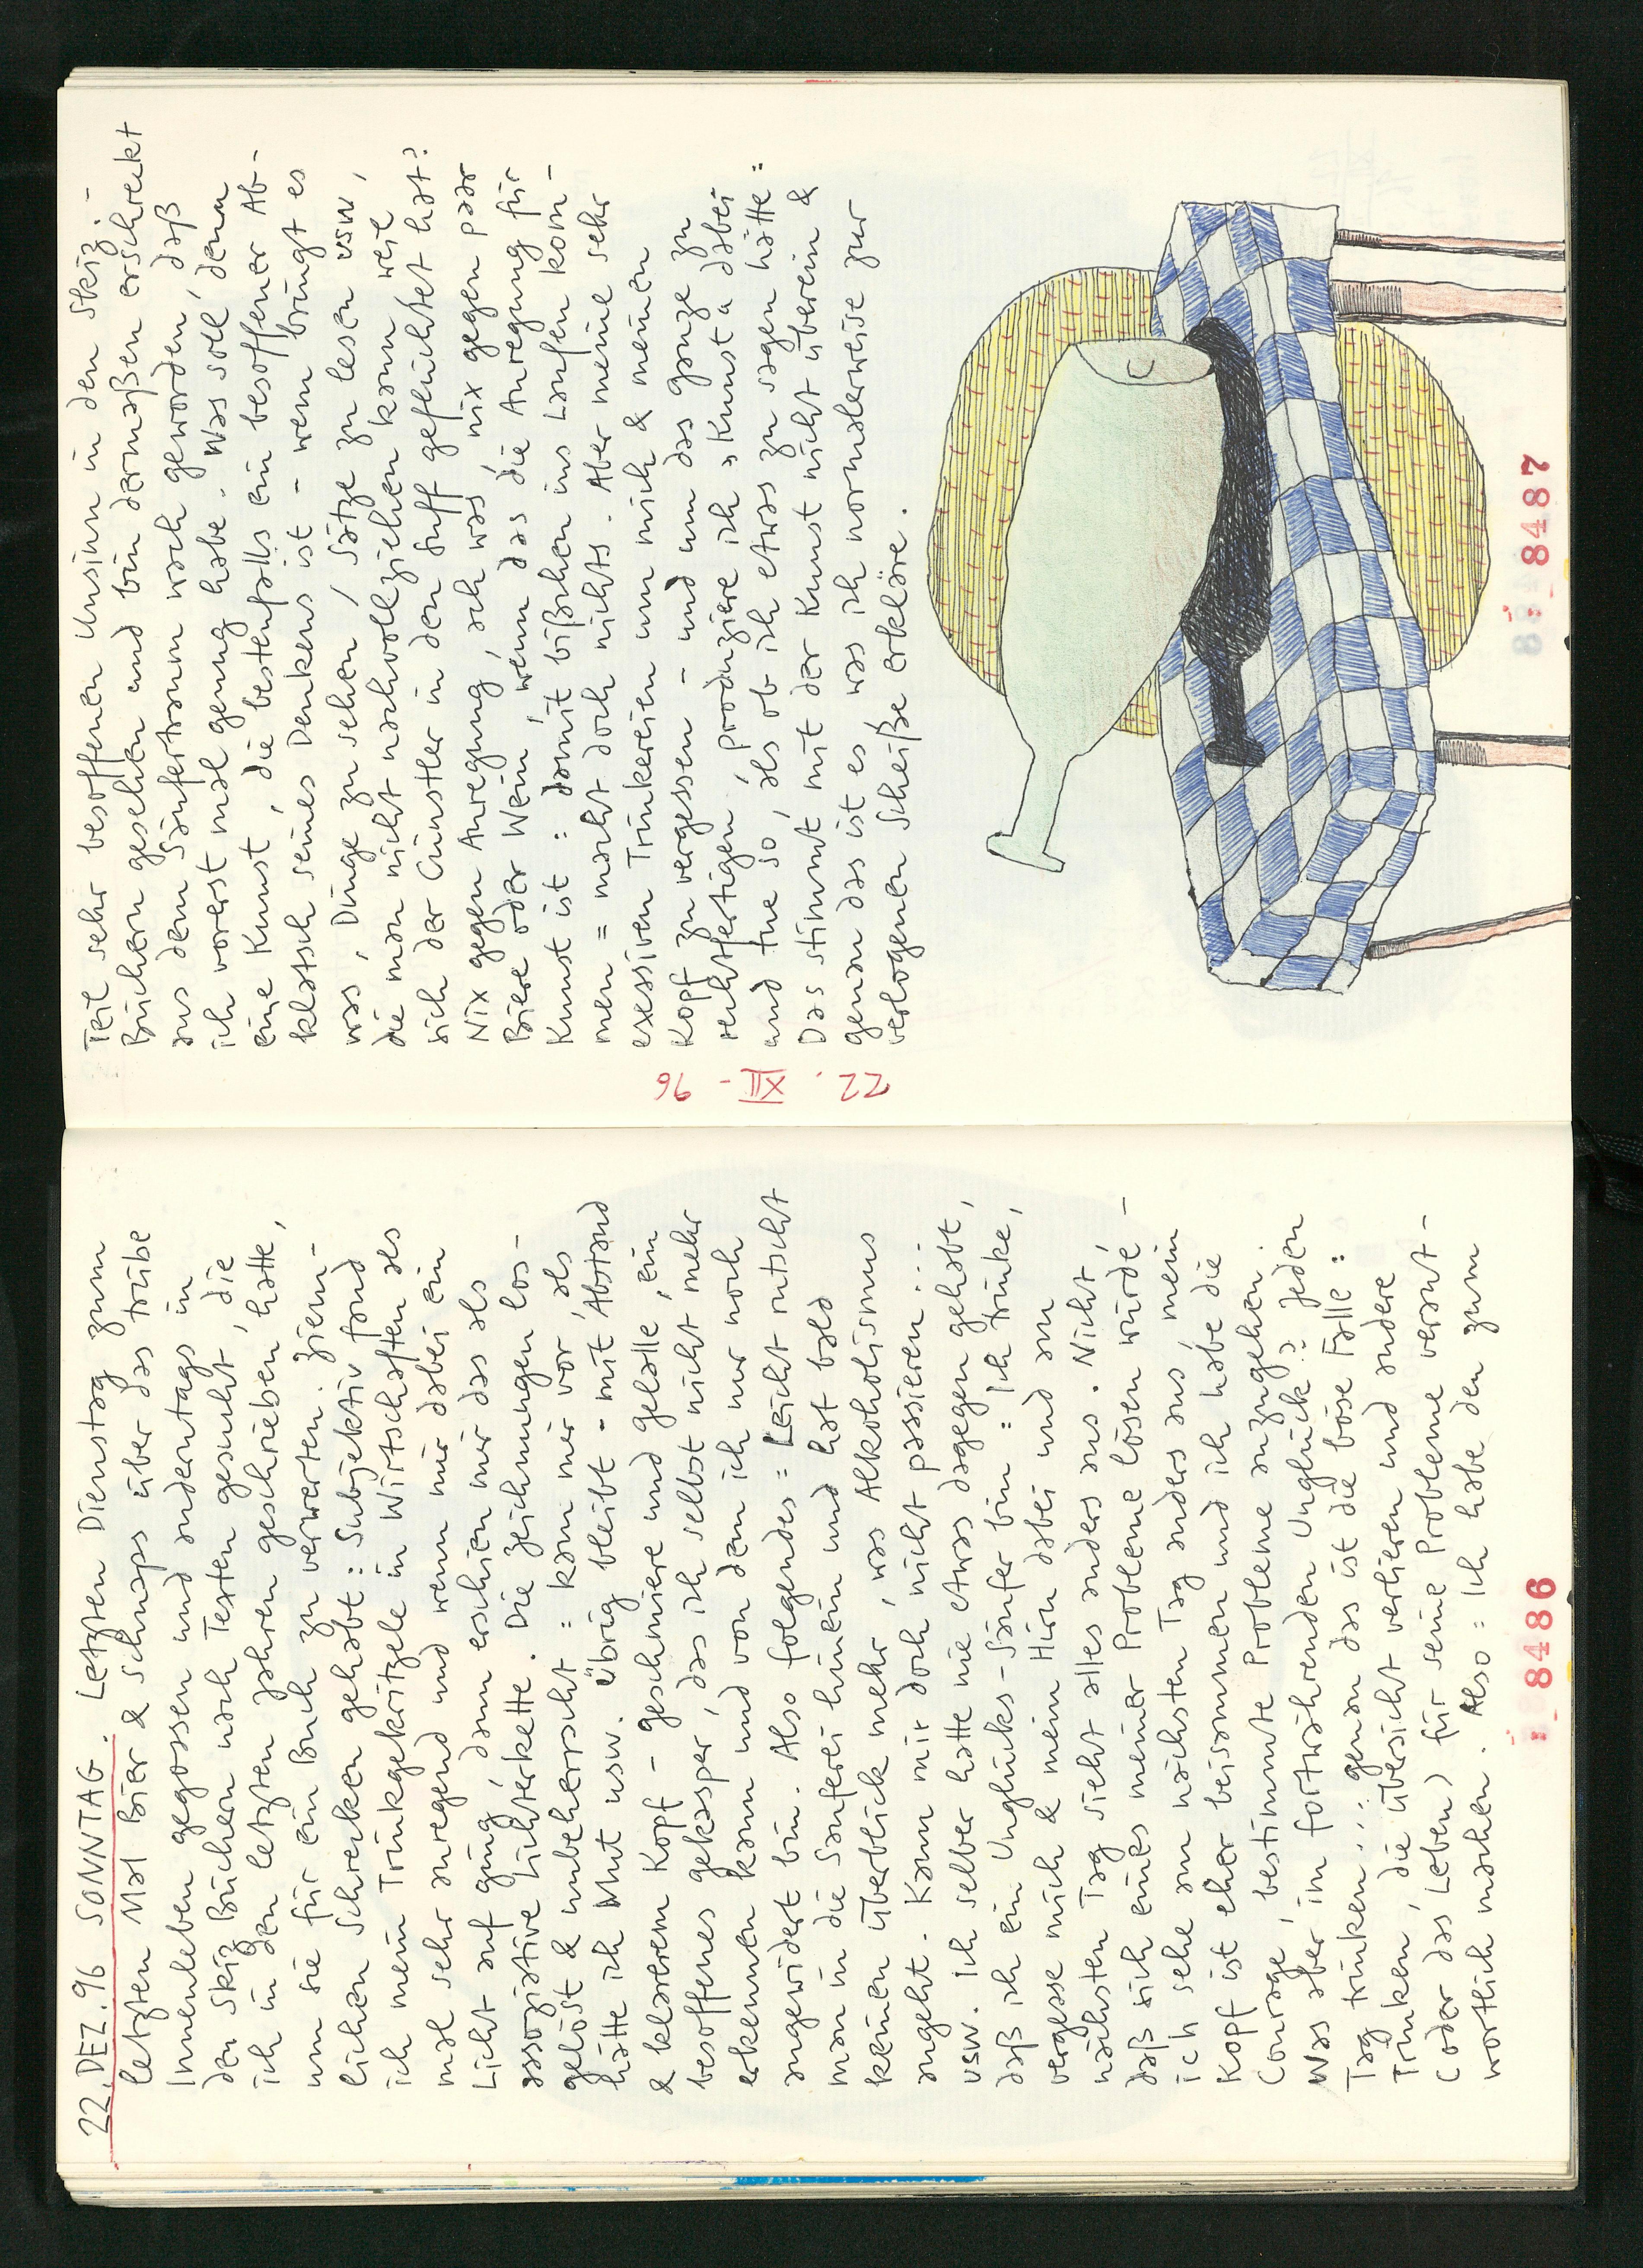 22. DEZ. 96 SONNTAG. Letzten Dienstag zum
letzten Mal Bier & Schnaps über das trübe
Innenleben gegossen und anderntags in
den Skiz Büchern nach Texten gesucht, die
ich in den letzten Jahren geschrieben hatte,
um sie für ein Buch zu verwerten. Ziem-
lichen Schrecken gehabt: Subjektiv fand
ich mein Trinkgekritzele in Wirtschaften als
mal sehr anregend und wenn mir dabei ein
Licht auf ging, dann erschien mir das als
assoziative Lichterkette. Die Zeichnungen los-
gelöst & unbeherrscht: kam mir vor, als
hätte ich Mut usw. Übrig bleibt - mit Abstand
& klarerem Kopf - Geschmiere und Gelalle, ein
besoffenes Gekasper, das ich selbst nicht mehr
erkennen kann und von dem ich nur noch
angewidert bin. Also folgendes = Leicht rutscht
man in die Sauferei hinein und hat bald
keinen Überblick mehr, was Alkoholismus
angeht. Kann mir doch nicht passieren...
usw. Ich selber hatte nie etwas dagegen gehabt,
daß ich ein Unglücks-Säufer bin: Ich trinke,
vergesse mich & mein Hirn dabei und am
nächsten Tag sieht alles anders aus. Nicht,
daß sich eines meiner Probleme lösen würde -
ich sehe am nächsten Tag anders aus, mein
Kopf ist eher beisammen und ich habe die
Courage, bestimmte Probleme anzugehen.
Was aber im fortwährenden Unglück? Jeden
Tag trinken... genau das ist die böse Falle:
Trinken, die Übersicht verlieren und andere
(oder das Leben) für seine Probleme verant-
wortlich machen. Also: Ich habe den zum
: 8486
Teil sehr besoffenen Unsinn in den Skiz.-
Büchern gesehen und bin dermaßen erschreckt
aus dem Säufertraum wach geworden, daß
ich vorerst mal genug habe. Was soll, denn
eine Kunst, die bestenfalls ein besoffener Ab-
klatsch seines Denkens ist - wem bringt es
was, Dinge zu sehen, Sätze zu lesen usw,
die man nicht nachvollziehen kann, weil
sich der Künstler in den Suff geflüchtet hat?
Nix gegen Anregung, ach was, nix gegen paar
Biere oder Wein, wenn das die Anregung für
Kunst ist: damit bißchen ins Laufen kom-
men = macht doch nichts. Aber meine sehr
exessiven Trinkereien um mich & meinen
Kopf zu vergessen - und um das ganze zu
rechtfertigen, produziere ich »Kunst« dabei
und tue so, als ob ich etwas zu sagen hätte:
Das stimmt mit der Kunst nicht überein &
genau das ist es, was ich normalerweise zur
verlogenen Scheiße erkläre.
22. XII - 96
: 8487